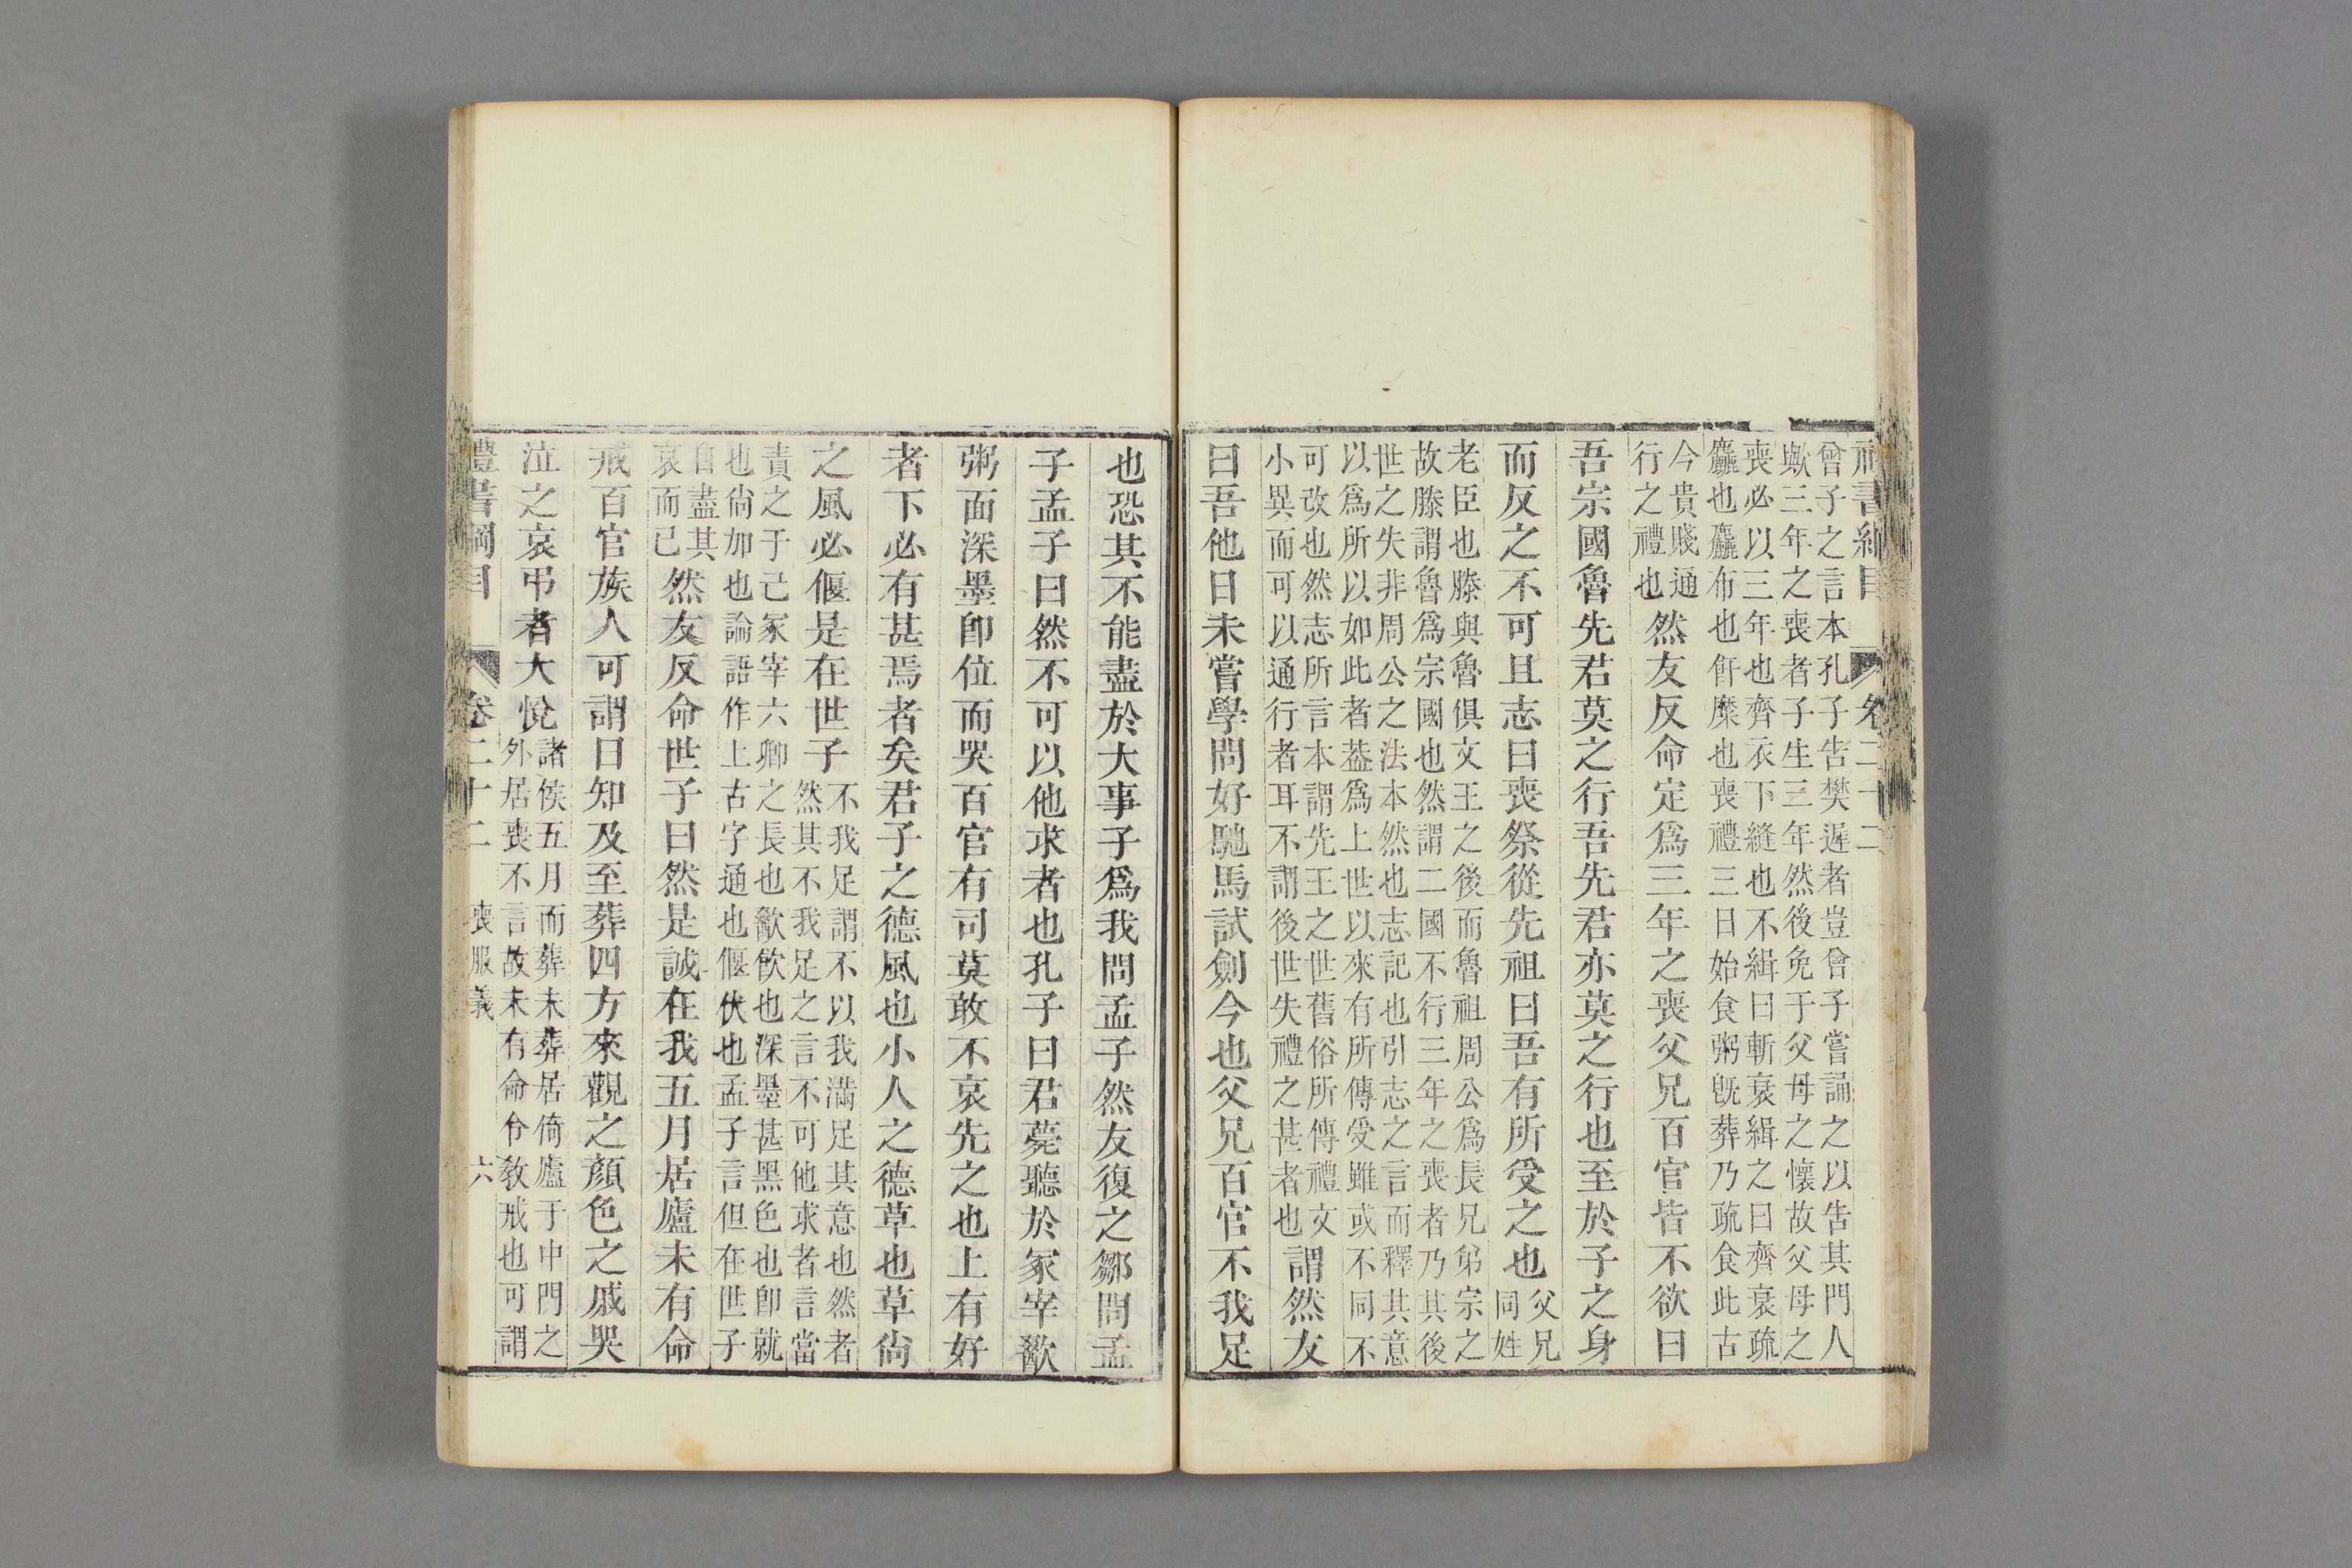 書綱目 卷二十二
曾子之言本孔子告樊遲者豈曾子嘗誦之以告其門人
歟三年之喪者子生三年然後免于父母之懷故父母之
喪必以三年也齊衣下縫也不緝曰斬衰緝之曰齊衰疏
麤也麤布也飦糜也喪禮三日始食粥旣葬乃疏食此古
今貴賤通
行之禮也
然友反命定爲三年之喪父兄百官皆不欲曰
吾宗國魯先君莫之行吾先君亦莫之行也至於子之身
而反之不可且志曰喪祭從先祖曰吾有所受之也
父兄
同姓
老臣也滕與魯俱文王之後而魯祖周公爲長兄弟宗之
故滕謂魯爲宗國也然謂二國不行三年之喪者乃其後
世之失非周公之法本然也志記也引志之言而釋其意
以爲所以如此者葢爲上世以來有所傳受雖或不同不
可改也然志所言本謂先王之世舊俗所傳禮文
小異而可以通行者耳不謂後世失禮之甚者也
謂然友
曰吾他日未嘗學問好馳馬試劍今也父兄百官不我足
也恐其不能盡於大事子爲我問孟子然友復之鄒問孟
子孟子曰然不可以他求者也孔子曰君薨聽於冢宰歠
粥面深墨卽位而哭百官有司莫敢不哀先之也上有好
者下必有甚焉者矣君子之德風也小人之德草也草尙
之風必偃是在世子
不我足謂不以我滿足其意也然者
然其不我足之言不可他求者言當
責之于己冢宰六卿之長也歠飮也深墨甚黑色也卽就
也尙加也論語作上古字通也偃伏也孟子言但在世子
自盡其
哀而已
然友反命世子曰然是誠在我五月居廬未有命
戒百官族人可謂曰知及至葬四方來觀之顏色之戚哭
泣之哀弔者大悅
諸侯五月而葬未葬居倚廬于中門之
外居喪不言故未有命令敎戒也可謂
禮書綱目 卷二十二 喪服義 六